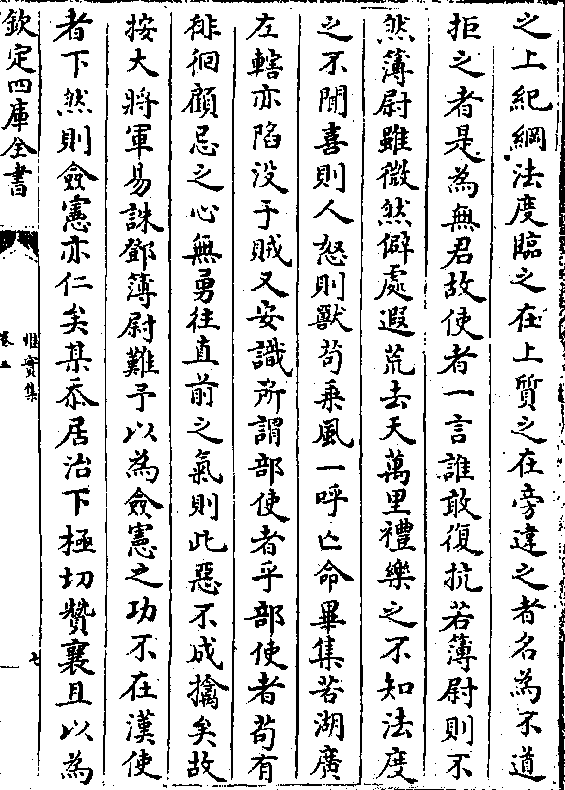 之上紀綱法度臨之在上質之在旁違之者名為不道
拒之者是為無君故使者一言誰敢復抗若簿尉則不
然簿尉雖微然僻處遐荒去天萬里禮樂之不知法度
之不閒喜則人怒則獸苟乘風一呼亡命畢集若湖廣
左轄亦陷没于賊又安識所謂部使者乎部使者苟有
徘徊顧忌之心無勇往直前之氣則此惡不成擒矣故
按大將軍易誅鄧簿尉難予以為僉憲之功不在漢使
者下然則僉憲亦仁矣某忝居治下極切贊襄且以為
欽定四庫全書
惟實集
卷上
七